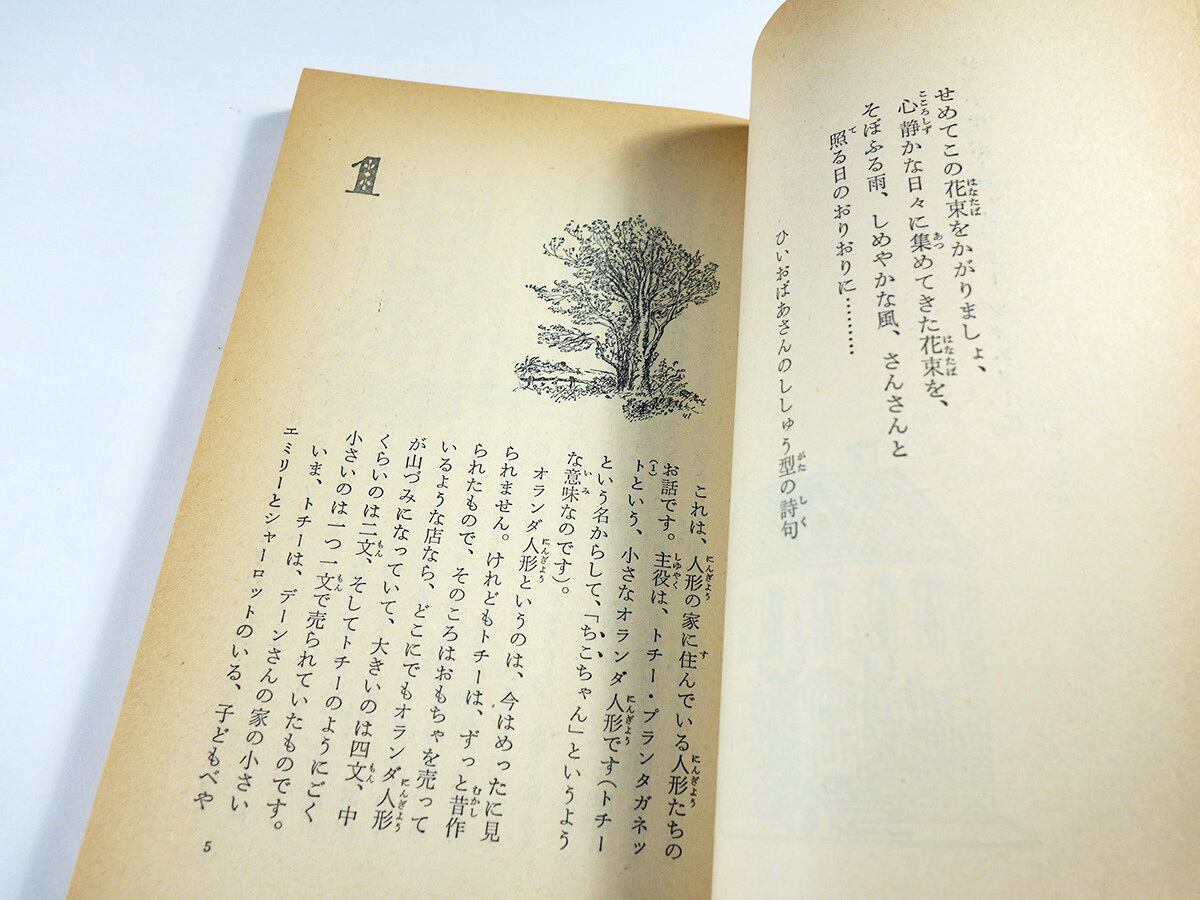 せめてこの花束をかがりましょ、
心静かな日々に集めてきた花束を、
そぼふる雨、しめやかな風、さんさんと
照る日のおりおりに………
ひいおばあさんのししゅう型の詩句
1
これは、人形の家に住んでいる人形たちの
お話です。主役は、トチー・プランタガネッ
ト(1)という、小さなオランダ人形です(トチー
という名からして、「ちこちゃん」というよう
な意味なのです)。
オランダ人形というのは、今はめったに見
られません。けれどもトチーは、ずっと昔作
られたもので、そのころはおもちゃを売って
いるような店なら、どこにでもオランダ人形
が山づみになっていて、大きいのは四文、中
くらいのは二文、そしてトチーのようにごく
小さいのは一つ一文で売られていたものです。
いま、トチーは、デーンさんの家の小さい
エミリーとシャーロットのいる、子どもべや
5